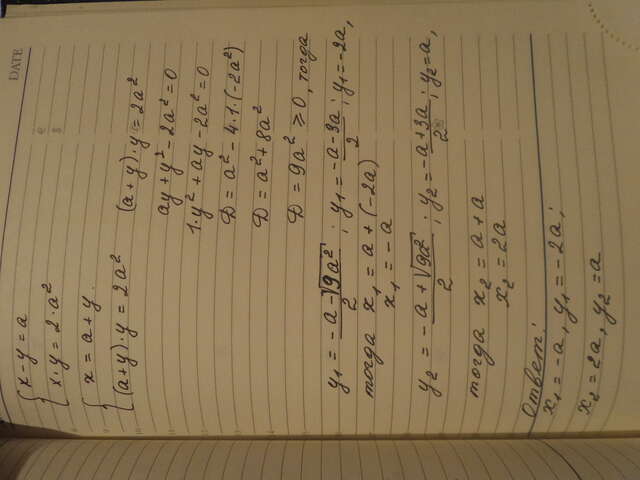 DATE
x - y = a
x · y = 2 · a²
x = a + y
(a+y) · y = 2a²
(a+y) · y = 2a²
ay + y² - 2a² = 0
1·y² + ay - 2a² = 0
D = a² - 4·1·(-2a²)
D = a² + 8a²
D = 9a² ⩾ 0, тогда
y₁ = (-a - √9a²)/2 ; y₁ = (-a-3a)/2 ; y₁ = -2a,
тогда x₁ = a + (-2a)
x₁ = -a
y₂ = (-a + √9a²)/2 ; y₂ = (-a+3a)/2 ; y₂ = a,
тогда x₂ = a + a
x₂ = 2a
Ответ:
x₁ = -a, y₁ = -2a;
x₂ = 2a, y₂ = a